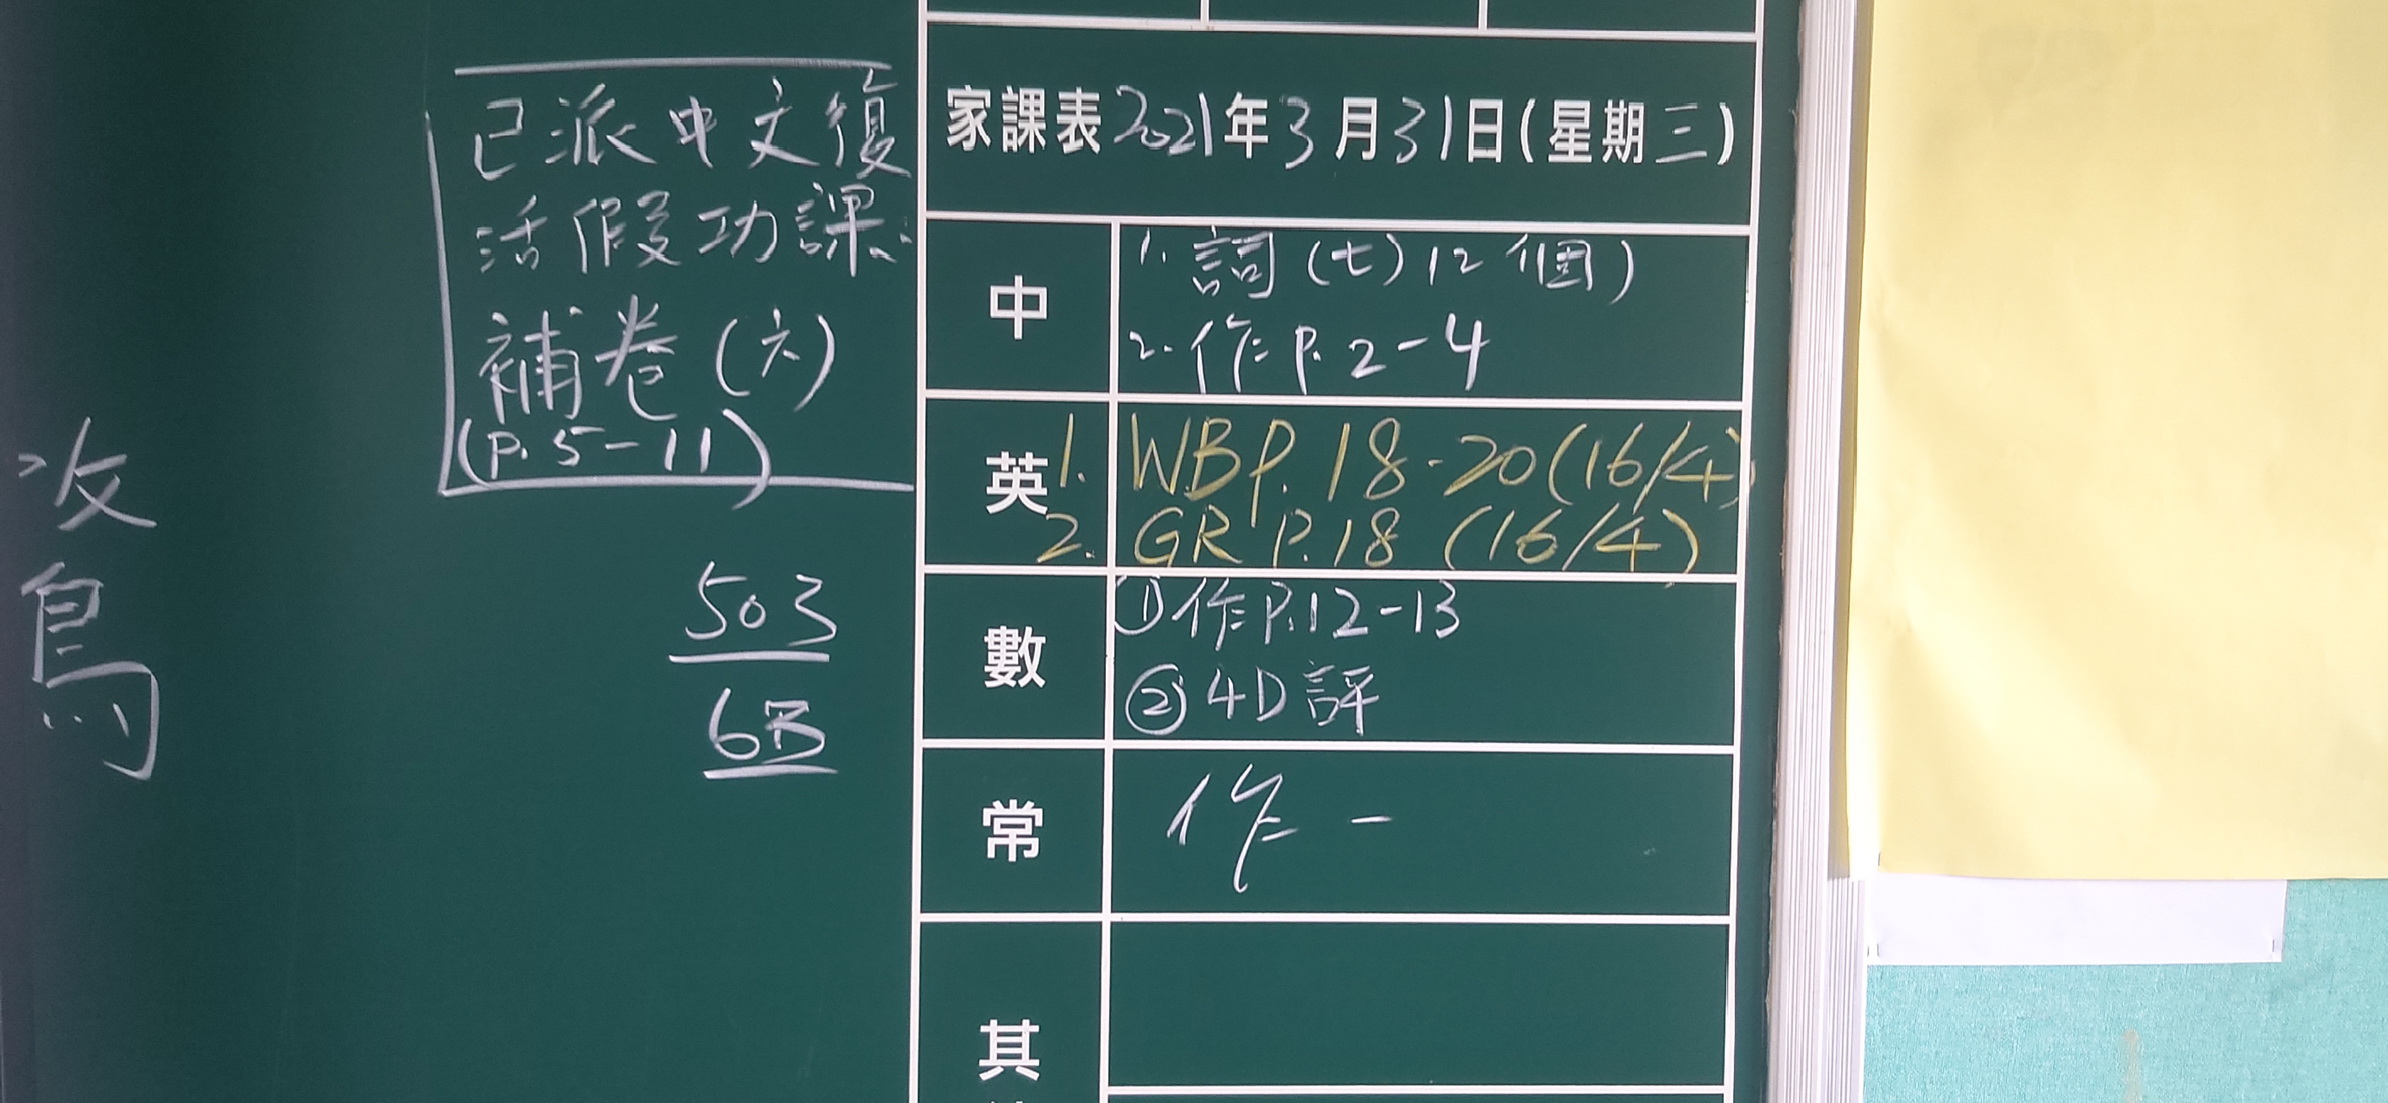 已派中文復
活假功課:
補卷(六)
(P.5-11)
503
6B
家課表2021年3月31日(星期三)
中
1. 詞(七)12個)
2. 作P.2-4
英
1. WB P.18-20(16/4)
2. GR P.18 (16/4)
數
①作P.12-13
②4D評
常
作一
其